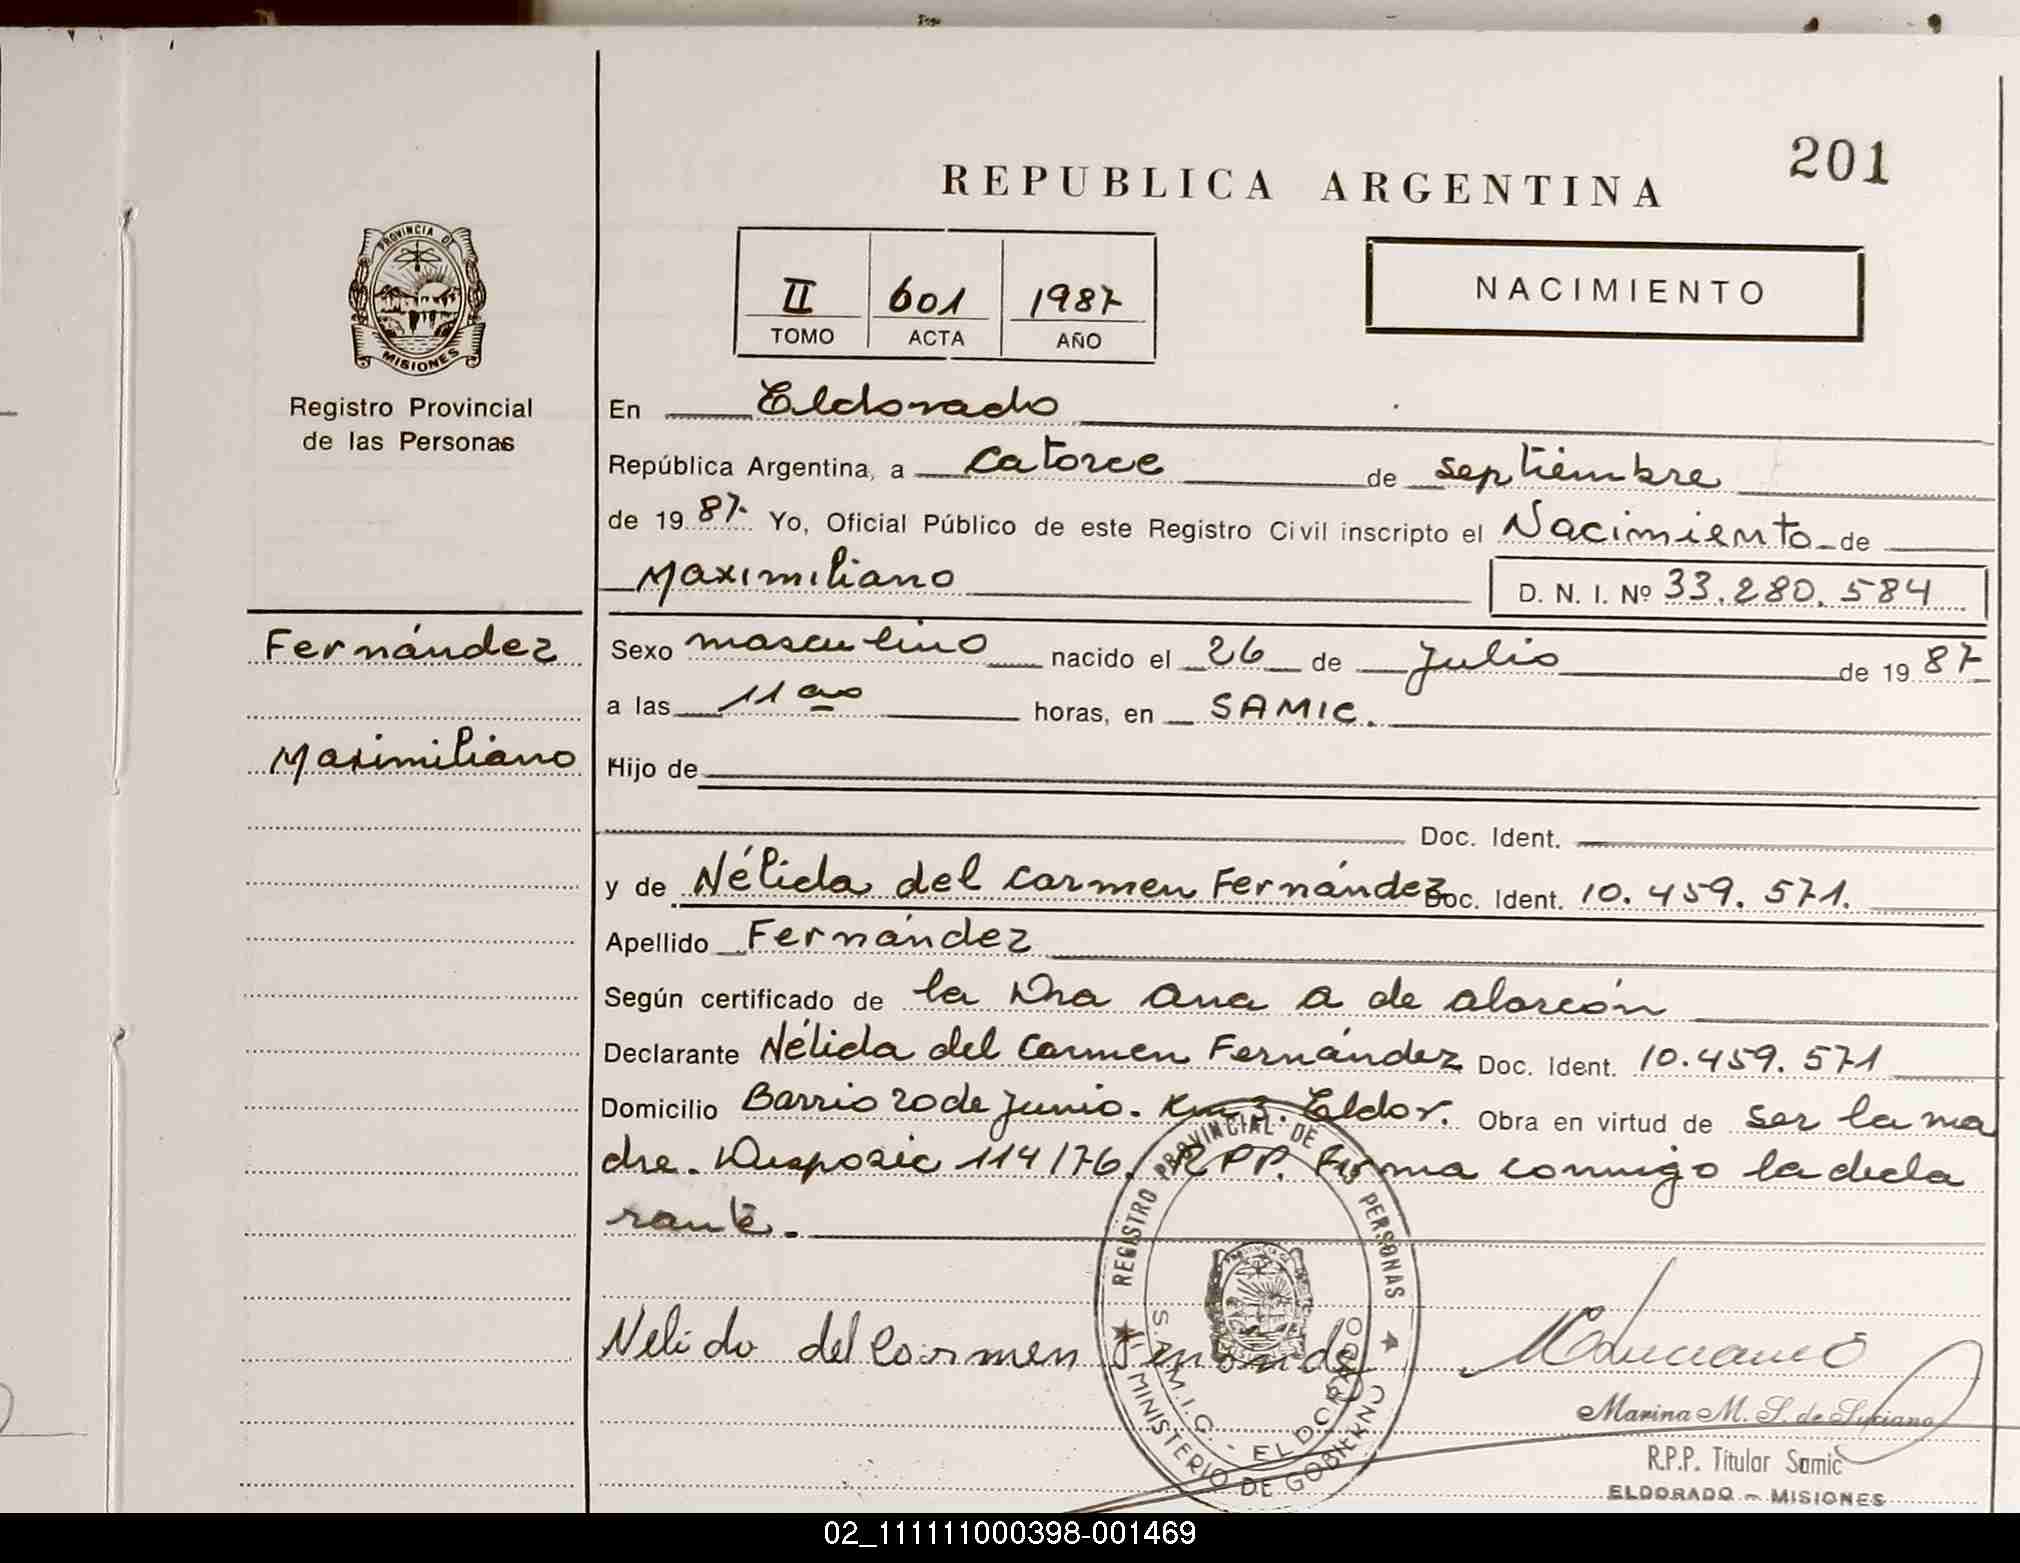 201
REPUBLICA ARGENTINA
NACIMIENTO
II 601 1987
TOMO ACTA AÑO
PROVINCIA DE
MISIONES
Registro Provincial
de las Personas
Fernández
Maximiliano
En Eldorado
República Argentina, a Catorce de septiembre
de 1987. Yo, Oficial Público de este Registro Civil inscripto el Nacimiento de
Maximiliano D. N. I. Nº 33.280.584
Sexo masculino nacido el 26 de Julio de 1987
a las 11 horas, en SAMIC.
Hijo de
Doc. Ident.
y de Nélida del Carmen Fernández Doc. Ident. 10.459.571.
Apellido Fernández
Según certificado de la Dra Ana A de Alarcón
Declarante Nélida del Carmen Fernández Doc. Ident. 10.459.571
Domicilio Barrio 20 de Junio. Km 3. Eldor. Obra en virtud de ser la ma
dre. Disposic 114/76. RPP. Firma conmigo la decla
rante.
REGISTRO PROVINCIAL DE LAS PERSONAS
S.A.M.I.C. - ELDORADO
MINISTERIO DE GOBIERNO
Nelida del Carmen
Marina M. S. de Luciano
R.P.P. Titular Samic
ELDORADO - MISIONES
02_111111000398-001469